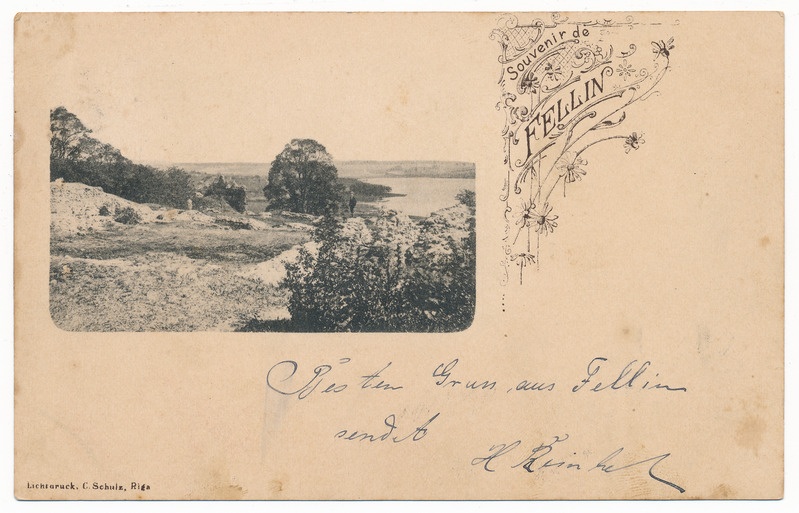 Souvenir de
FELLIN
Besten Gruss aus Fellin
sendet
H
Lichtdruck, C. Schulz, Riga